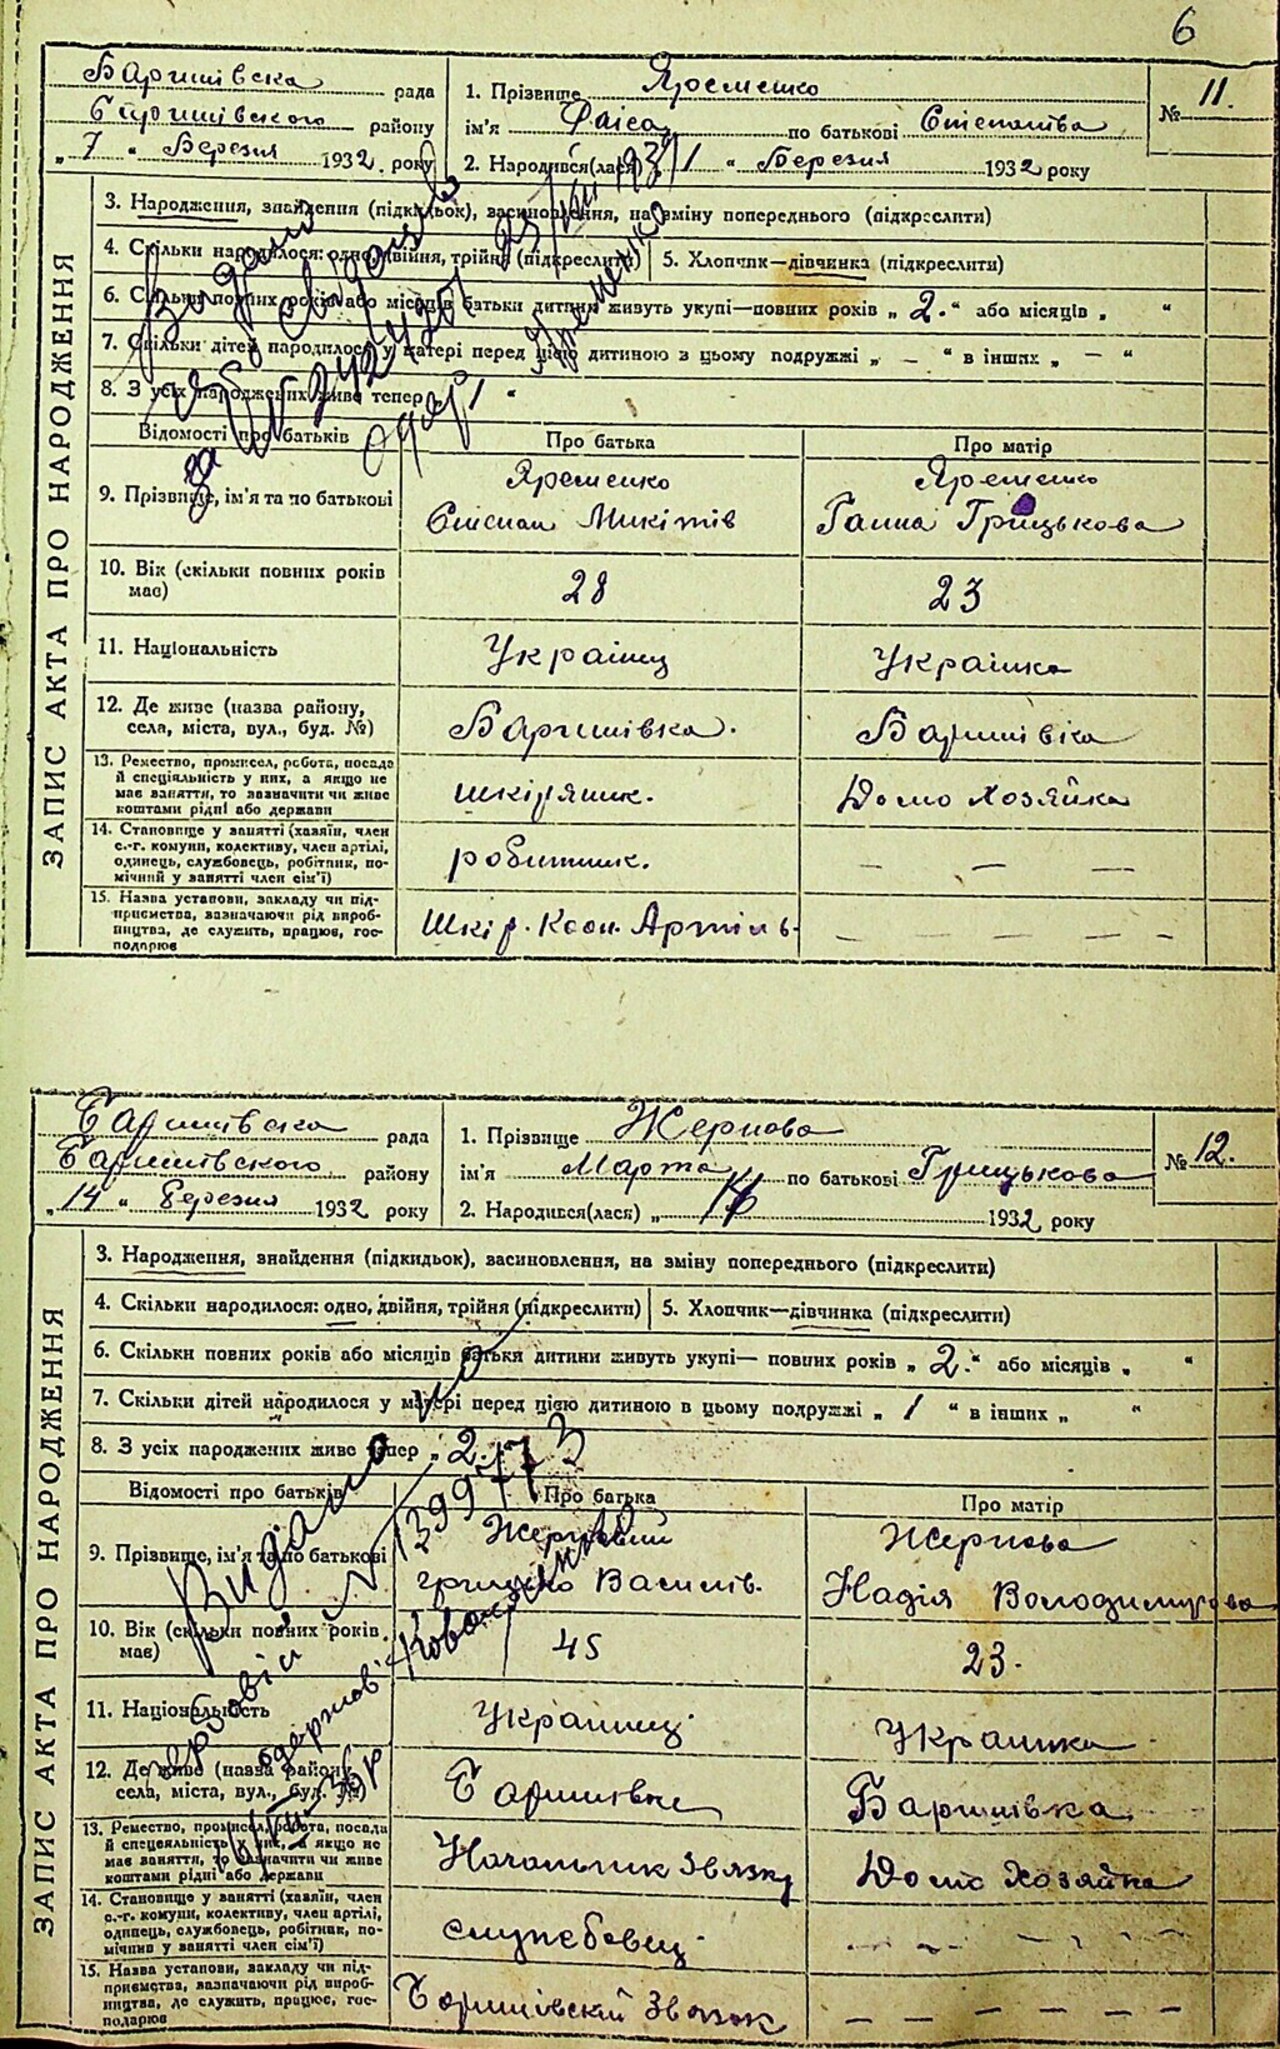 6
Баришівська рада
Баришівського району
„ 7 “ Березня 1932 року
1. Прізвище Яременко
ім'я Раїса по батькові Степанівна
2. Народився(лася) „ 1 “ Березня 1932 року
№ 11.
ЗАПИС АКТА ПРО НАРОДЖЕННЯ
3. Народження, знайдення (підкидьок), засиновлення, на зміну попереднього (підкреслити)
4. Скільки народилося: одно, двійня, трійня (підкреслити)
5. Хлопчик—дівчинка (підкреслити)
6. Скільки повних років або місяців батьки дитини живуть укупі—повних років „ 2. “ або місяців „ “
7. Скільки дітей народилося у матері перед цією дитиною в цьому подружжі „ — “ в інших „ — “
8. З усіх народжених живе тепер „ 1 “
Відомості про батьків
Про батька
Про матір
9. Прізвище, ім'я та по батькові
Яременко
Степан Микітів
Яременко
Ганна Грицькова
10. Вік (скільки повних років
має)
28
23
11. Національність
Українц
Українка
12. Де живе (назва району,
села, міста, вул., буд. №)
Баришівка.
Баришівка
13. Ремество, промисел, робота, посада
й спеціяльність у них, а якщо не
має заняття, то зазначити чи живе
коштами рідні або держави
шкіряник.
Домо Хозяйка
14. Становище у занятті (хазяїн, член
с.-г. комуни, колективу, член артілі,
одинець, службовець, робітник, по-
мічний у занятті член сім'ї)
робитник.
— — —
15. Назва установи, закладу чи під-
приємства, зазначаючи рід вироб-
ництва, де служить, працює, гос-
подарює
Шкір. Кооп. Артіль.
— — — — —
Видано
Яременко
Баришівська рада
Баришівського району
„ 14 “ березня 1932 року
1. Прізвище Жернова
ім'я Марта по батькові Грицькова
2. Народився(лася) „ 1932 року
№ 12.
ЗАПИС АКТА ПРО НАРОДЖЕННЯ
3. Народження, знайдення (підкидьок), засиновлення, на зміну попереднього (підкреслити)
4. Скільки народилося: одно, двійня, трійня (підкреслити)
5. Хлопчик—дівчинка (підкреслити)
6. Скільки повних років або місяців батьки дитини живуть укупі— повних років „ 2. “ або місяців „ “
7. Скільки дітей народилося у матері перед цією дитиною в цьому подружжі „ 1 “ в інших „ “
8. З усіх народжених живе тепер „ 2.
Відомості про батьків
Про батька
Про матір
9. Прізвище, ім'я та по батькові
Жерновий
грицько Василів.
Жернова
Надія Володимирова
10. Вік (скільки повних років
має)
45
23.
11. Національність
Україниц
Українка
12. Де живе (назва району,
села, міста, вул., буд. №)
Баришівка
Баришівка
13. Ремество, промисел, робота, посада
й спецеяльність у них, а якщо не
має заняття, то зазначити чи живе
коштами рідні або держави
Начальник Звязку
Домо Хозяйка
14. Становище у занятті (хазяїн, член
с.-г. комуни, колективу, член артілі,
одинець, службовець, робітник, по-
мічний у занятті член сім'ї)
службовец
15. Назва установи, закладу чи під-
приємства, зазначаючи рід вироб-
ництва, де служить, працює, гос-
подарює
Баришівский Звязок
— — — — —
Видано